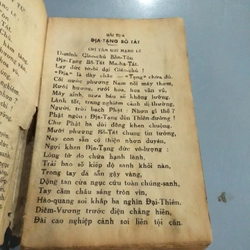 BÀI TỰA
ĐỊA-TẠNG BỒ TÁT
CHÍ TÂM QUI MẠNG LỄ
Giáo-chủ Bổn-Tôn
Địa-Tạng Bồ-Tát Ma-ha-Tát.
Lạy đức từ-bi đại Giáo-chủ !
"Địa" là dày chắc — "Tạng" chứa đủ.
Cõi nước phương Nam nổi mây thơm,
Rưới hương, rưới hoa, hoa vần vũ.
Mây xinh, mưa báu số không lường,
Lành tốt, trang nghiêm cảnh dị-thường,
Người, trời bạch Phật : Nhơn gì thế ?
Phật rằng : Địa-Tạng đến Thiên-đường !
Chư Phật ba đời đồng khen chuộng,
Mười phương Bồ-Tát chung tin tưởng.
Nay con sẵn có thiện nhân-duyên,
Ngợi khen Địa-Tạng đức vô-lượng :
Lòng từ do chứa hạnh lành,
Trải bao số kiếp độ sanh khỏi nàn,
Trong tay đã sẵn gậy vàng,
Động tan cửa ngục cứu toàn chúng-sanh,
Tay cầm châu sáng tròn vìn,
Hào-quang soi khắp ba nghìn Đại-Thiên.
Diêm-Vương trước điện chẳng hiền,
Đài cao nghiệp cảnh soi liền tội căn.